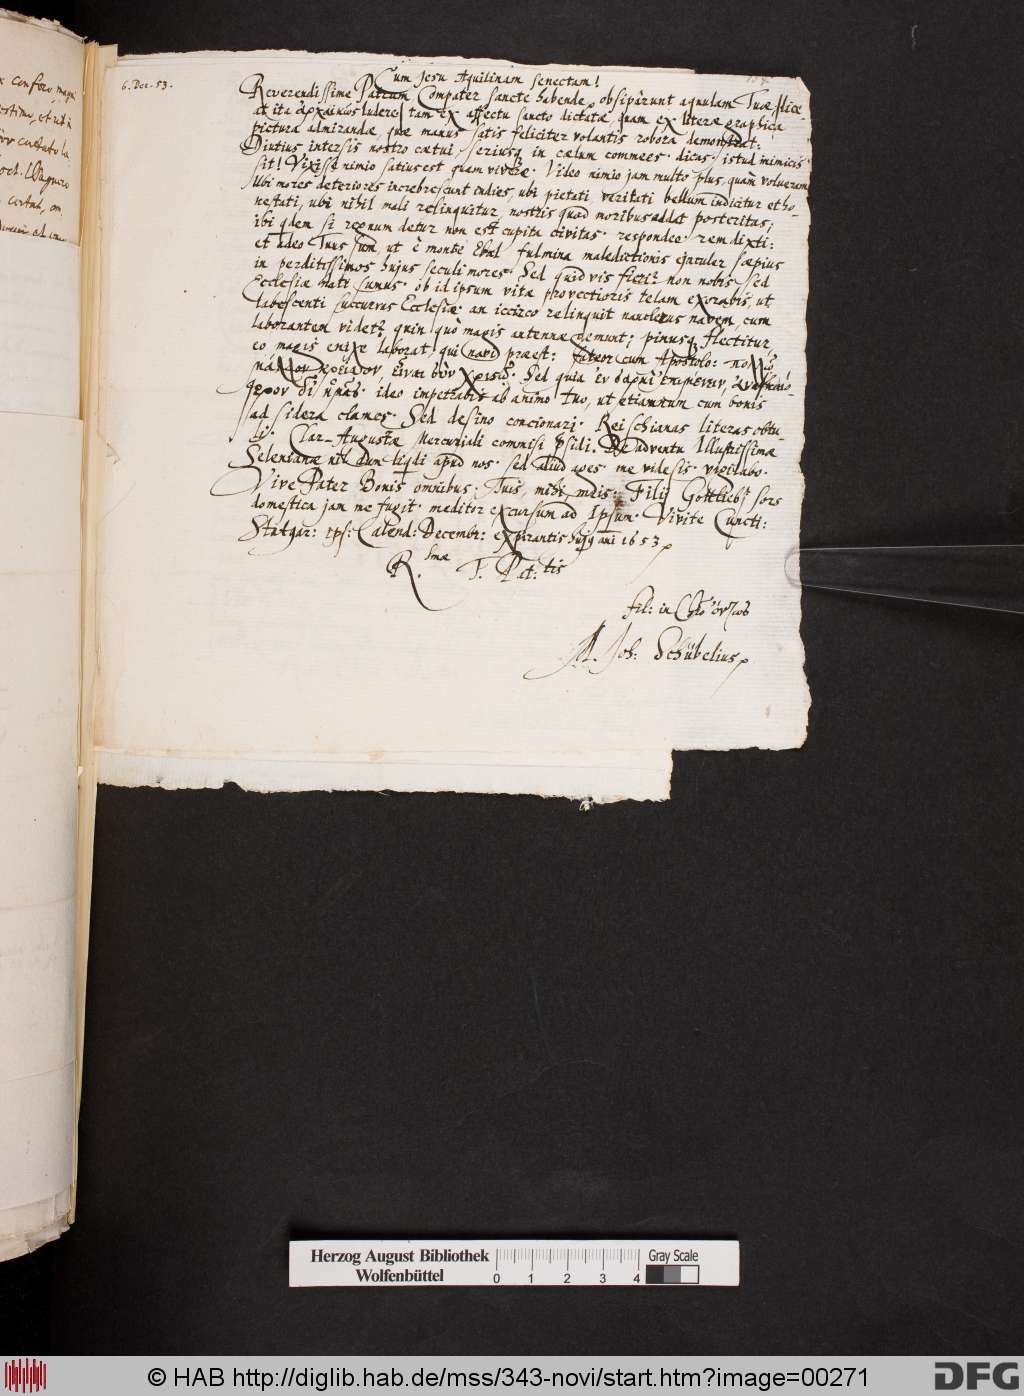 6. Dec. 53.
Cum Jesu Aquilinam Senectam!
Reverendissime Patrum Compater sancte habende, obsiparunt aquulam Tuæ, lice-
at ita ludere, tam ex affectu sancto dictatæ, quam ex literæ graphica
pictura admirandæ, quæ manus satis feliciter volantis robora demonstrat:
Diutius intersis nostro cætui, seriusq; in cælum commees. dicas, istud mimicis
sit! Vixisse nimio satius est quam vivere. Video nimio jam multo plus, quam volueram
Ubi mores deteriores increbrescunt indies, ubi pietati, veritati bellum indicitur et ho-
nestati, ubi nihil mali relinquitur, nostris quod moribus addat posteritas;
ibi qdem si regnum detur non est cupita civitas. respondeo. rem dixti:
et adeo Tuus sum, ut è monte Ebal fulmina maledictionis ejaculer sæpius
in perditissimos hujus seculi mores. Sed quid vis non nobis sed
Ecclesiæ nati sumus. ob id ipsum vitæ provectioris telam exorabis, ut
labescenti succurras Ecclesiæ. an iccirco relinquit nauclerus navem, cum
laborantem videt? quin quò magis antennæ gemunt, pinusq; flectitur,
eo magis enixe laborat, qui navi præest: fateor cum Apostolo: πολλῷ
μᾶλλον κρεῖσσον εἶναι σὺν Χριστῷ. Sed quia
δι' ὑμᾶς. ideo impetrabis ab animo Tuo, ut etiamnum cum bonis
ad sidera clames. Sed desino concionari. Reischianas literas obtu-
li. Clar. Augustæ Mercuriali commisi De adventu Illustrissimæ
Selenianæ nil dum apud nos. sed aliud agos me videsis vigilabo.
Vive Pater Bonis omnibus, Tuis, mihi, meis: Filij Gottlieb sors
domestica jam me fugit. meditor excursum ad Ipsum. Vivite Cuncti:
Stutgar: ips: Calend: Decembr: expirantis hujq ani 1653.
R.smæ T. Pat:tis
fil: in Chro
M. Joh: Schübelius
Herzog August Bibliothek
Wolfenbüttel
0 1 2 3 4
Gray Scale
© HAB http://diglib.hab.de/mss/343-novi/start.htm?image=00271
DFG